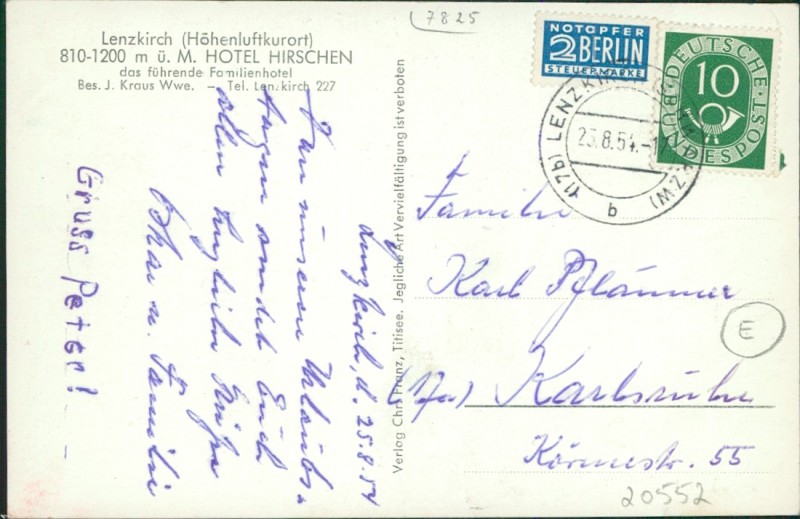 (7825
Lenzkirch (Höhenluftkurort)
810-1200 m ü. M. HOTEL HIRSCHEN
das führende Familienhotel
Bes. J. Kraus Wwe. — Tel. Lenzkirch 227
NOTOPFER
2 BERLIN
STEUERMARKE
DEUTSCHE
10
BUNDESPOST
(17b) LENZKIRCH
25.8.54.-17
b
Lenzkirch, d. 25.8.54
Von unseren Urlaubs-
tagen sendet Euch
allen herzliche Grüße
u. Familie
Gruss Peter!
Verlag Chr. Franz, Titisee. Jegliche Art Vervielfältigung ist verboten
Familie
Karl Pflänner
(17a) Karlsruhe
Körnerstr. 55
E
20552